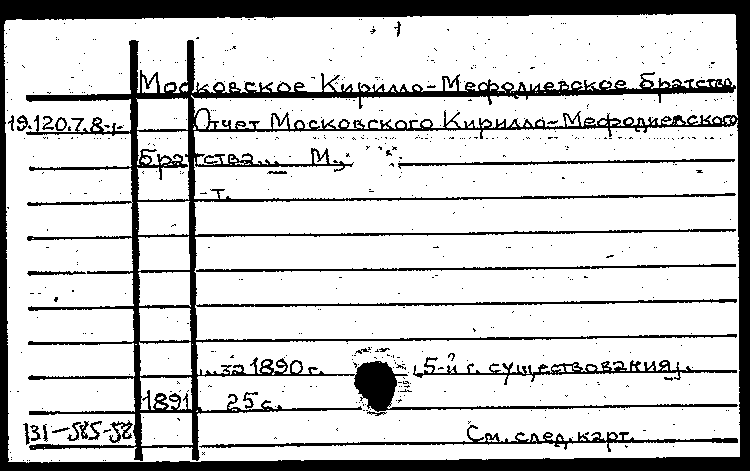 Московское Кирилло-Мефодиевское братство.
19.120.7.8 Отчет Московского Кирилло-Мефодиевского
братства... М.,
-т.
...за 1890 г. (5-й г. существования).
1891. 25 с.
131-585-58 См. след. карт.